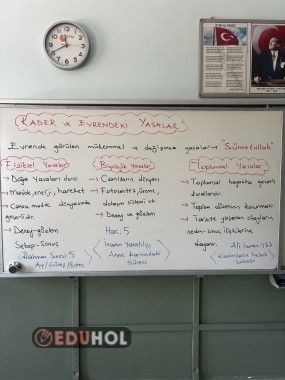 KADER VE EVRENDEKİ YASALAR
Evrende görülen mükemmel ve değişmez yasalar → "Sünnetullah"
Fiziksel Yasalar
→ Doğa Yasaları denir.
→ Madde, enerji, hareket
→ Cansız madde dünyasında geçerlidir.
→ Deney-gözlem
Sebep-Sonuç
Rahman Suresi: 5
Ay/Güneş/Evren
Biyolojik Yasalar
→ Canlıların dünyası
→ Fotosentez, üreme, dolaşım sistemi vb.
→ Deney ve gözlem
Hac: 5
İnsanın Yaratılışı,
Anne Karnındaki
Süreci
Toplumsal Yasalar
→ Toplumsal hayatta geçerli kurallardır.
→ Toplum düzenini korunması
→ Tarihte yaşanan olayların neden-sonuç ilişkilerine dayanır.
Ali İmran: 137
EDUHOL